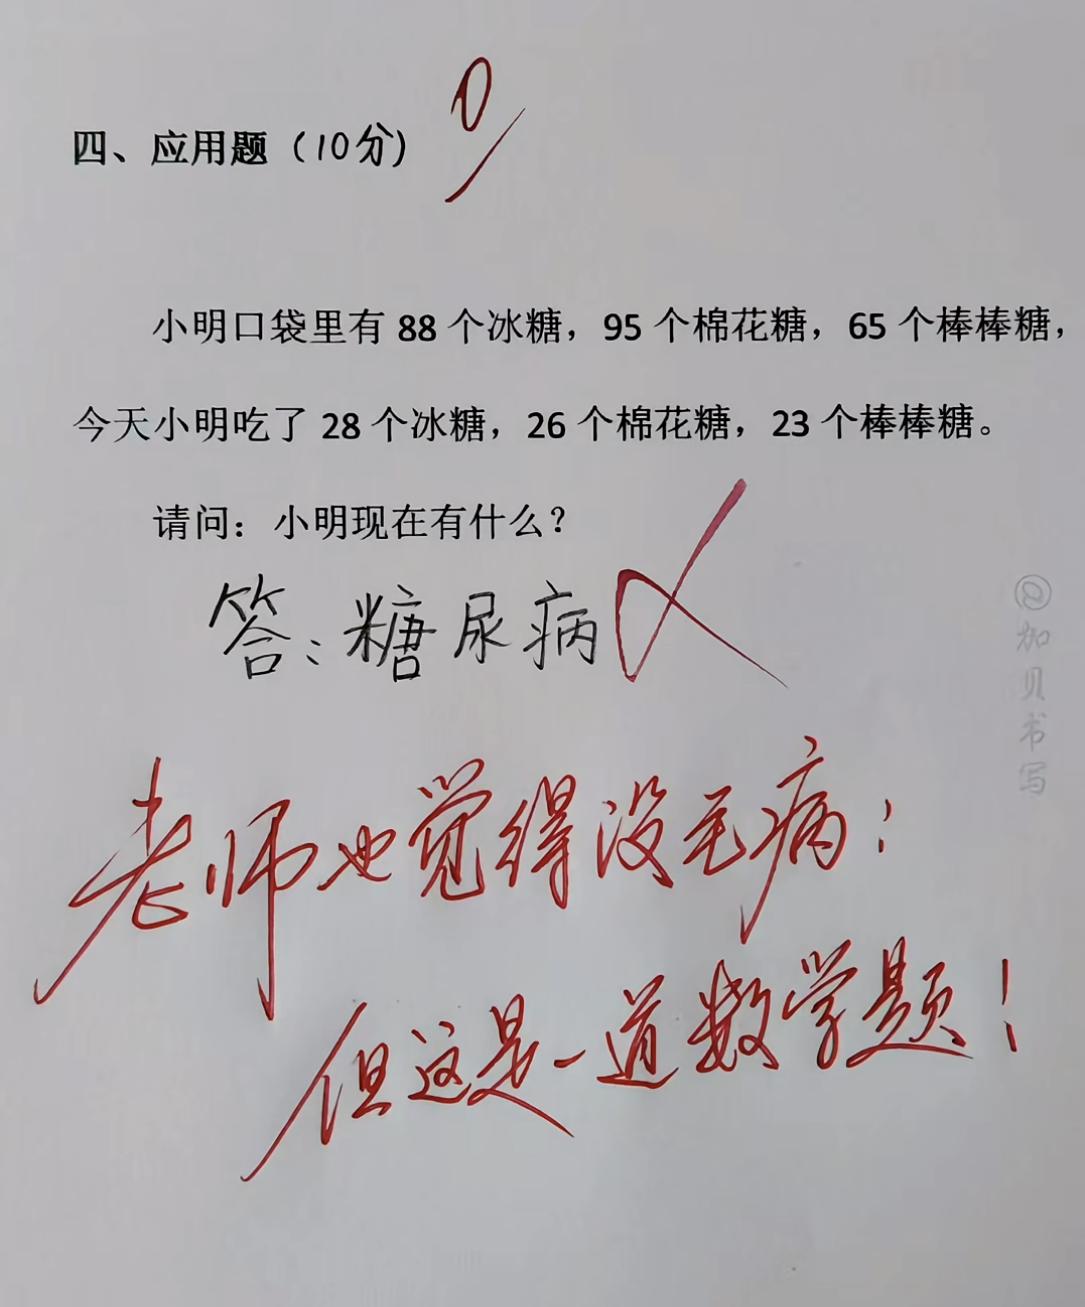 四、应用题（10分）
0
小明口袋里有 88 个冰糖，95 个棉花糖，65 个棒棒糖，
今天小明吃了 28 个冰糖，26 个棉花糖，23 个棒棒糖。
请问：小明现在有什么？
答：糖尿病
老师也觉得没毛病；
但这是一道数学题！
@加贝书写